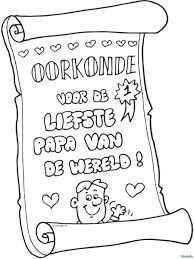 OORKONDE
VOOR DE 1
LIEFSTE
PAPA VAN
DE WERELD!